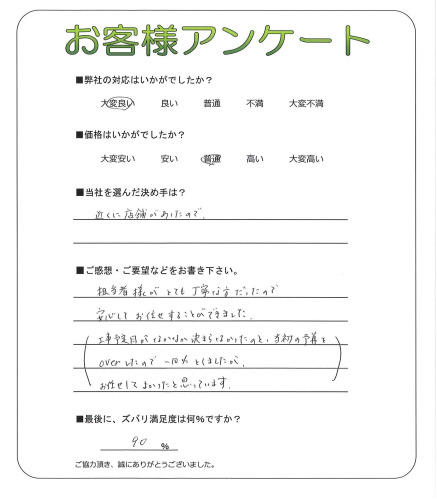 お客様アンケート
■弊社の対応はいかがでしたか？
大変良い 良い 普通 不満 大変不満
■価格はいかがでしたか？
大変安い 安い 普通 高い 大変高い
■当社を選んだ決め手は？
近くに店舗があったので.
■ご感想・ご要望などをお書き下さい。
担当者様がとても丁寧な方だったので
安心してお任せすることができました.
工事予定日がなかなか決まらなかったのと、当初の予算を
overしたので
としましたが、
お任せしてよかったと思っています.
■最後に、ズバリ満足度は何%ですか？
90 %
ご協力頂き、誠にありがとうございました。